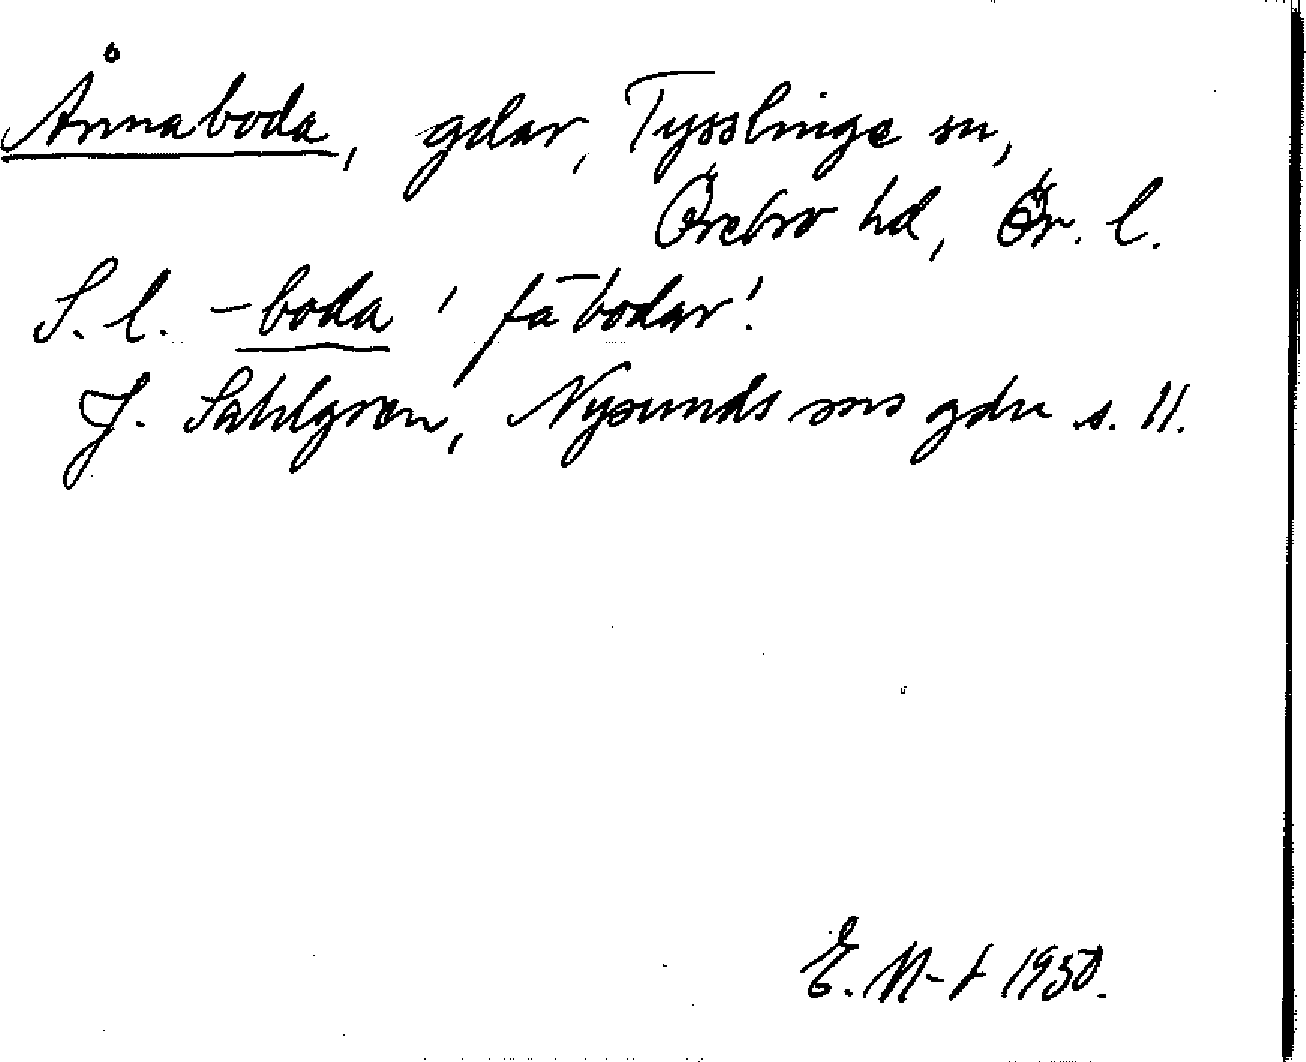 Ånnaboda, gdar, Tysslinge sn,
Örebro hd, Ör. l.
S. l. -boda 'fäbodar'.
J. Sahlgren, Nysunds sns gdn s. 11.
E. N-t 1950.